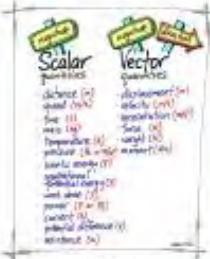 magnitude
magnitude
direction
Scalar
quantities
Vector
quantities
distance (m)
speed (m/s)
time (s)
mass (kg)
temperature (K)
pressure
kinetic energy (J)
gravitational
potential energy (J)
work done (J)
power
current
potential difference (V)
resistance
displacement (m)
velocity (m/s)
acceleration (m/s²)
force (N)
weight (N)
moment (Nm)